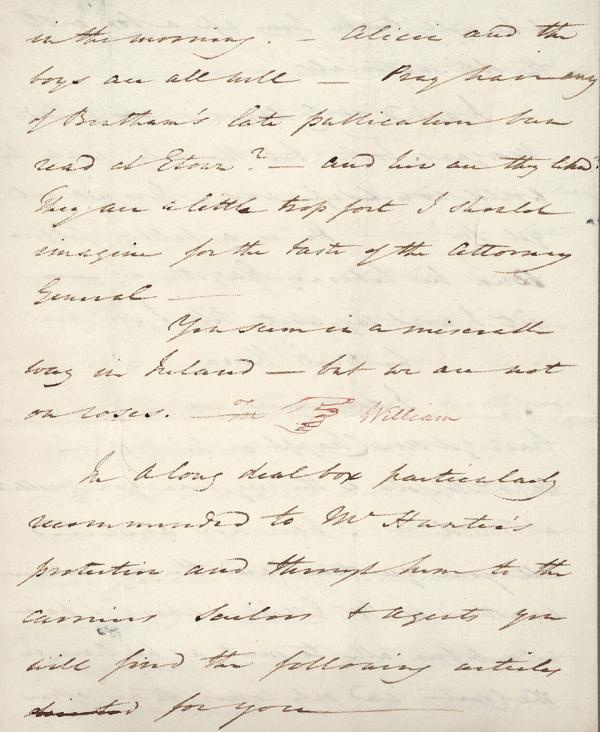 in the morning. — Alicia and the
boys are all well — Pray have any
of Bentham's late publications been
read at Eton? — and how are they liked?
They are a little trop fort I should
imagine for the taste of the Attorney
General —
You seem in a miserable
way in Ireland — but we are not
on roses. — To William
In a long deal box particularly
recommended to Mr Hunter's
protection and through him to the
carriers sailors & agents you
will find the following articles
for you